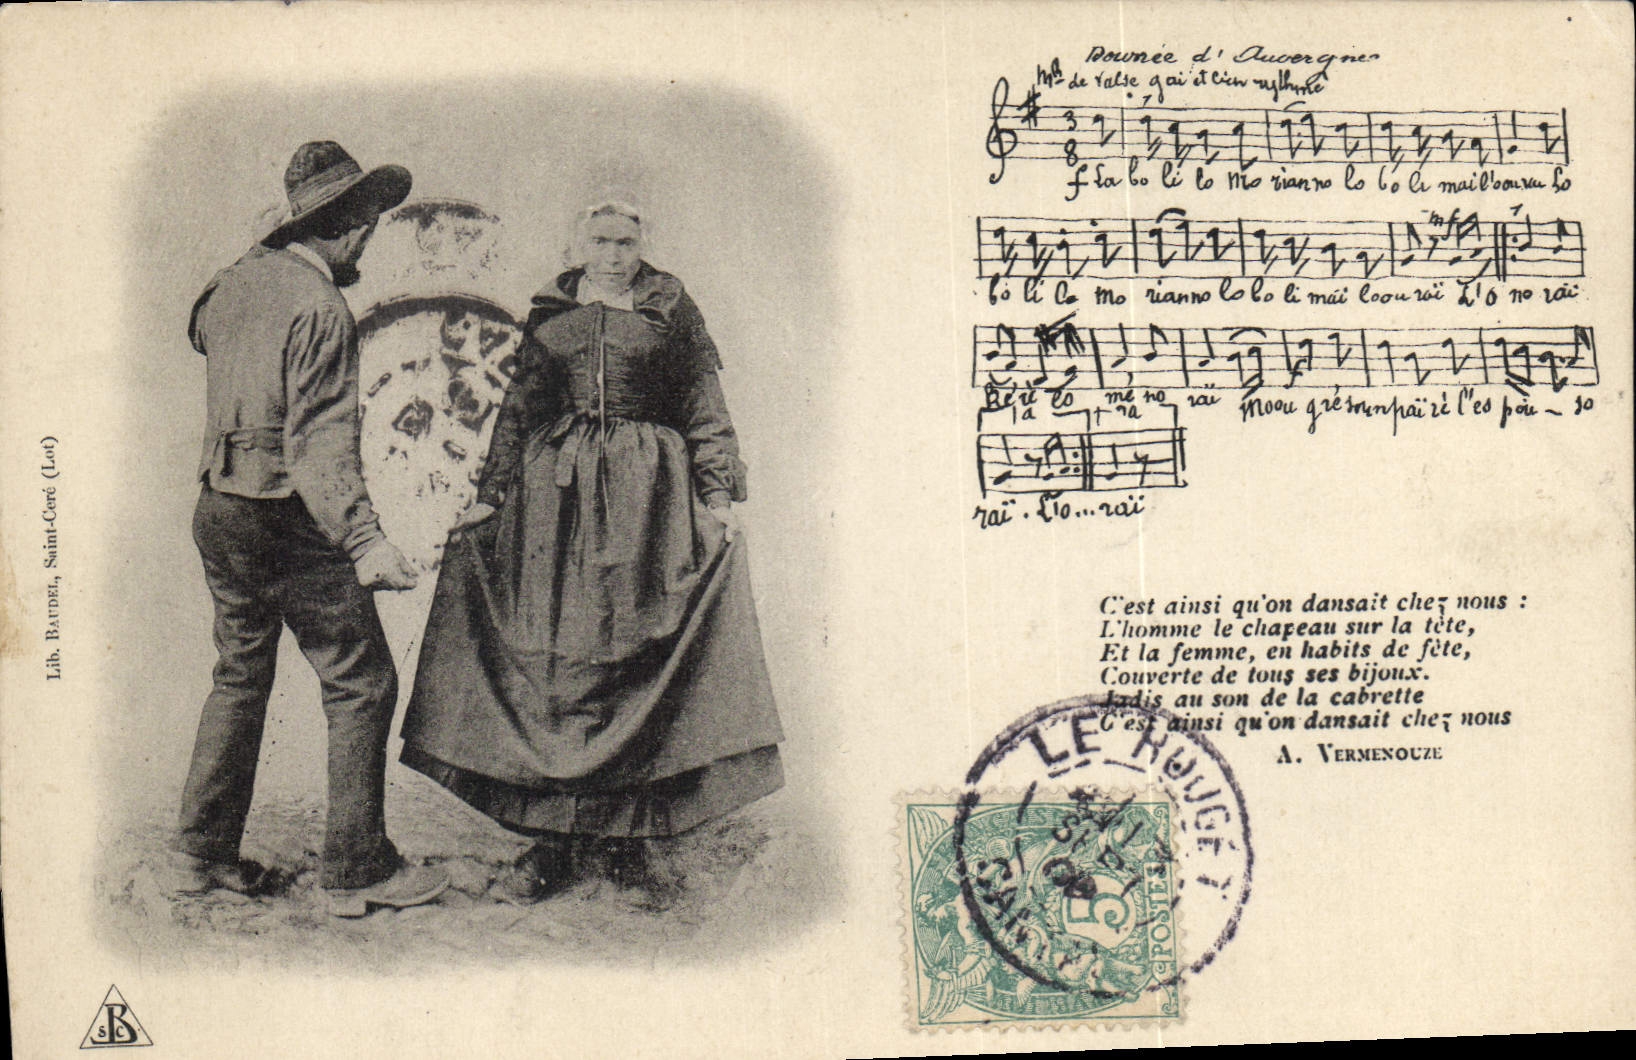 Lib. BAUDEL, Saint-Ceré (Lot)
Bourrée d'Auvergne
Mt de valse gai et bien rythmé
3
8
f La bo li lo Mo rianno lo bo li mai l'oouvu Lo
bo li lo Mo rianno lo bo li mai loou raï L'o no raï
mf
mé no raï Moou
1a 2a
raï . L'o...raï
C'est ainsi qu'on dansait chez nous :
L'homme le chapeau sur la tête,
Et la femme, en habits de fête,
Couverte de tous ses bijoux.
Jadis au son de la cabrette
C'est ainsi qu'on dansait chez nous
A. VERMENOUZE
LE ROUGET
CANTAL
5
POSTES
SBC